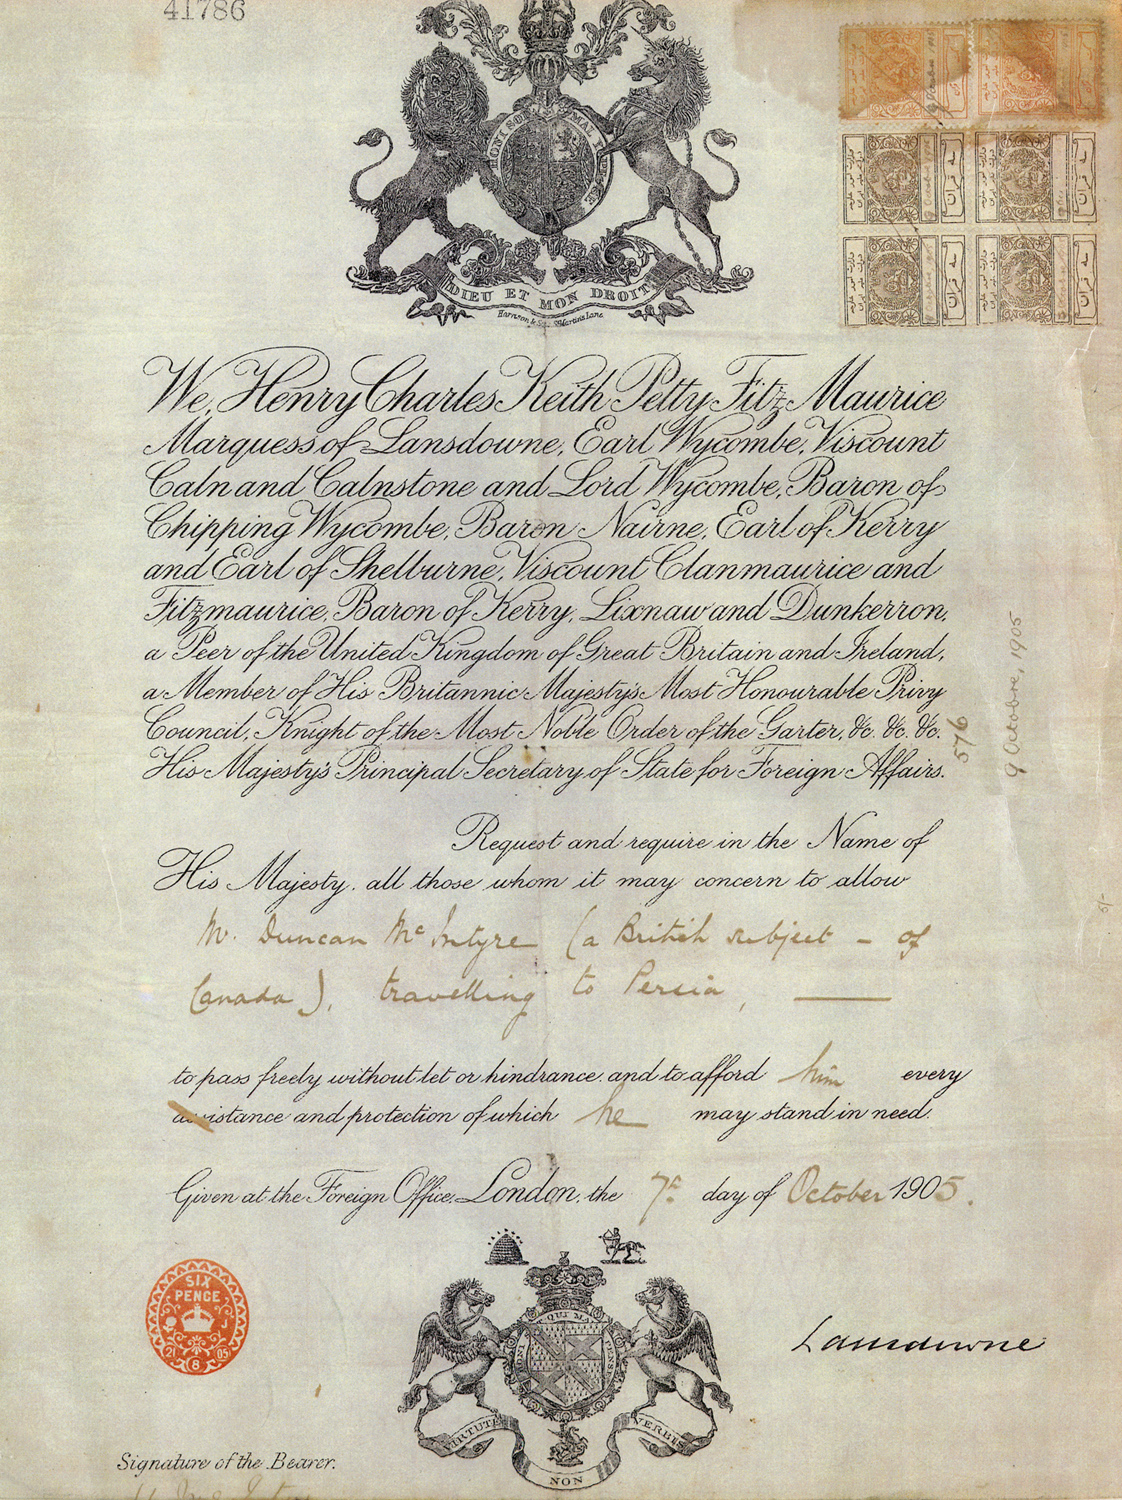 41786
HONI SOIT
MAL Y PENSE
DIEU ET MON DROIT
Harrison & Sons, St Martin's Lane.
سه قران
سه قران
سه قران
سه قران
We, Henry Charles Keith Petty Fitz Maurice
Marquess of Lansdowne, Earl Wycombe, Viscount
Caln and Calnstone and Lord Wycombe, Baron of
Chipping Wycombe, Baron Nairne, Earl of Kerry
and Earl of Shelburne, Viscount Clanmaurice and
Fitzmaurice, Baron of Kerry, Lixnaw and Dunkerron,
a Peer of the United Kingdom of Great Britain and Ireland,
a Member of His Britannic Majesty's Most Honourable Privy
Council, Knight of the Most Noble Order of the Garter, &c. &c. &c.
His Majesty's Principal Secretary of State for Foreign Affairs.
576
9 Octobre, 1905
Request and require in the Name of
His Majesty, all those whom it may concern to allow
Mr. Duncan McIntyre (a British subject - of
Canada), travelling to Persia,
to pass freely without let or hindrance, and to afford him every
assistance and protection of which he may stand in need.
Given at the Foreign Office, London, the 7th day of October 1905.
5/-
SIX
PENCE
21 8 05
QUI MAL
VIRTUTE
NON
VERBIS
Lansdowne
Signature of the Bearer.